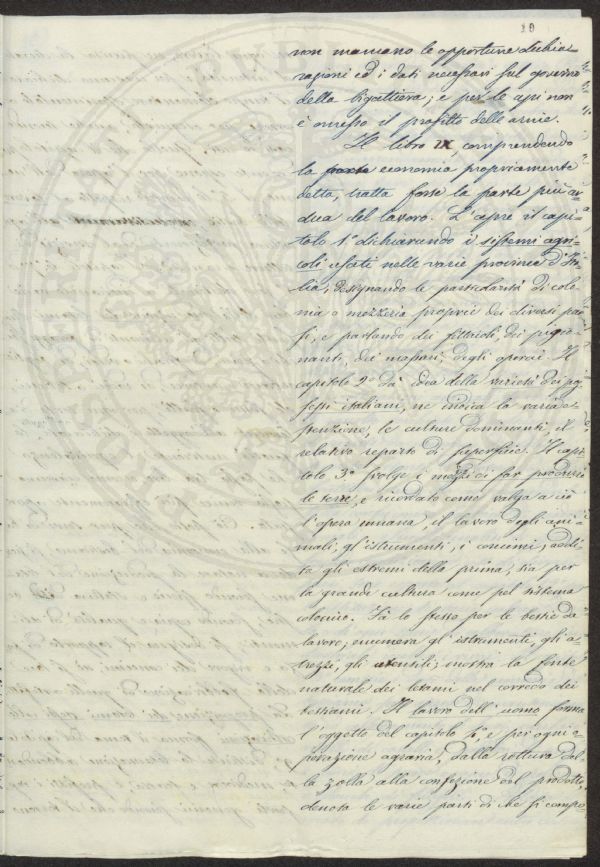 19
non mancano le opportune dichia-
razioni ed i dati necessari sul governo
della bigattiera; e per le api non
è omesso il profitto delle arnie.
Il libro IX, comprendendo
la parte economia propriamente
detta, tratta forse la parte più ar-
dua del lavoro. L'apre il capi-
tolo 1º dichiarando i sistemi agri-
coli usati nelle varie provincie d'Ita-
lia, designando le particolarità di colo-
nia o mezzeria proprie dei diversi pae-
si, e parlando dei fittaioli, dei pigio-
nanti, dei massari, degli operai. Il
capitolo 2º dà idea della varietà dei pos-
sessi italiani, ne indica la varia e-
stenzione, le culture dominanti, il
relativo reparto di superficie. Il capi-
tolo 3º svolge i mezzi di far produrre
le terre, e ricordato come valga a ciò
l'opera umana, il lavoro degli ani-
mali, gl'istrumenti, i concimi, addi-
ta gli estremi della prima, sia per
la grande cultura come pel sistema
colonico. Fà lo stesso per le bestie da
lavoro; enumera gl'istrumenti, gli at-
trezzi, gli utensili; mostra la fonte
naturale dei letami nel corredo dei
bestiami. Il lavoro dell'uomo forma
l'oggetto del capitolo, e per ogni o-
perazione agraria, dalla rottura del-
la zolla alla confezione del prodotto,
denota le varie parti di che si compo-